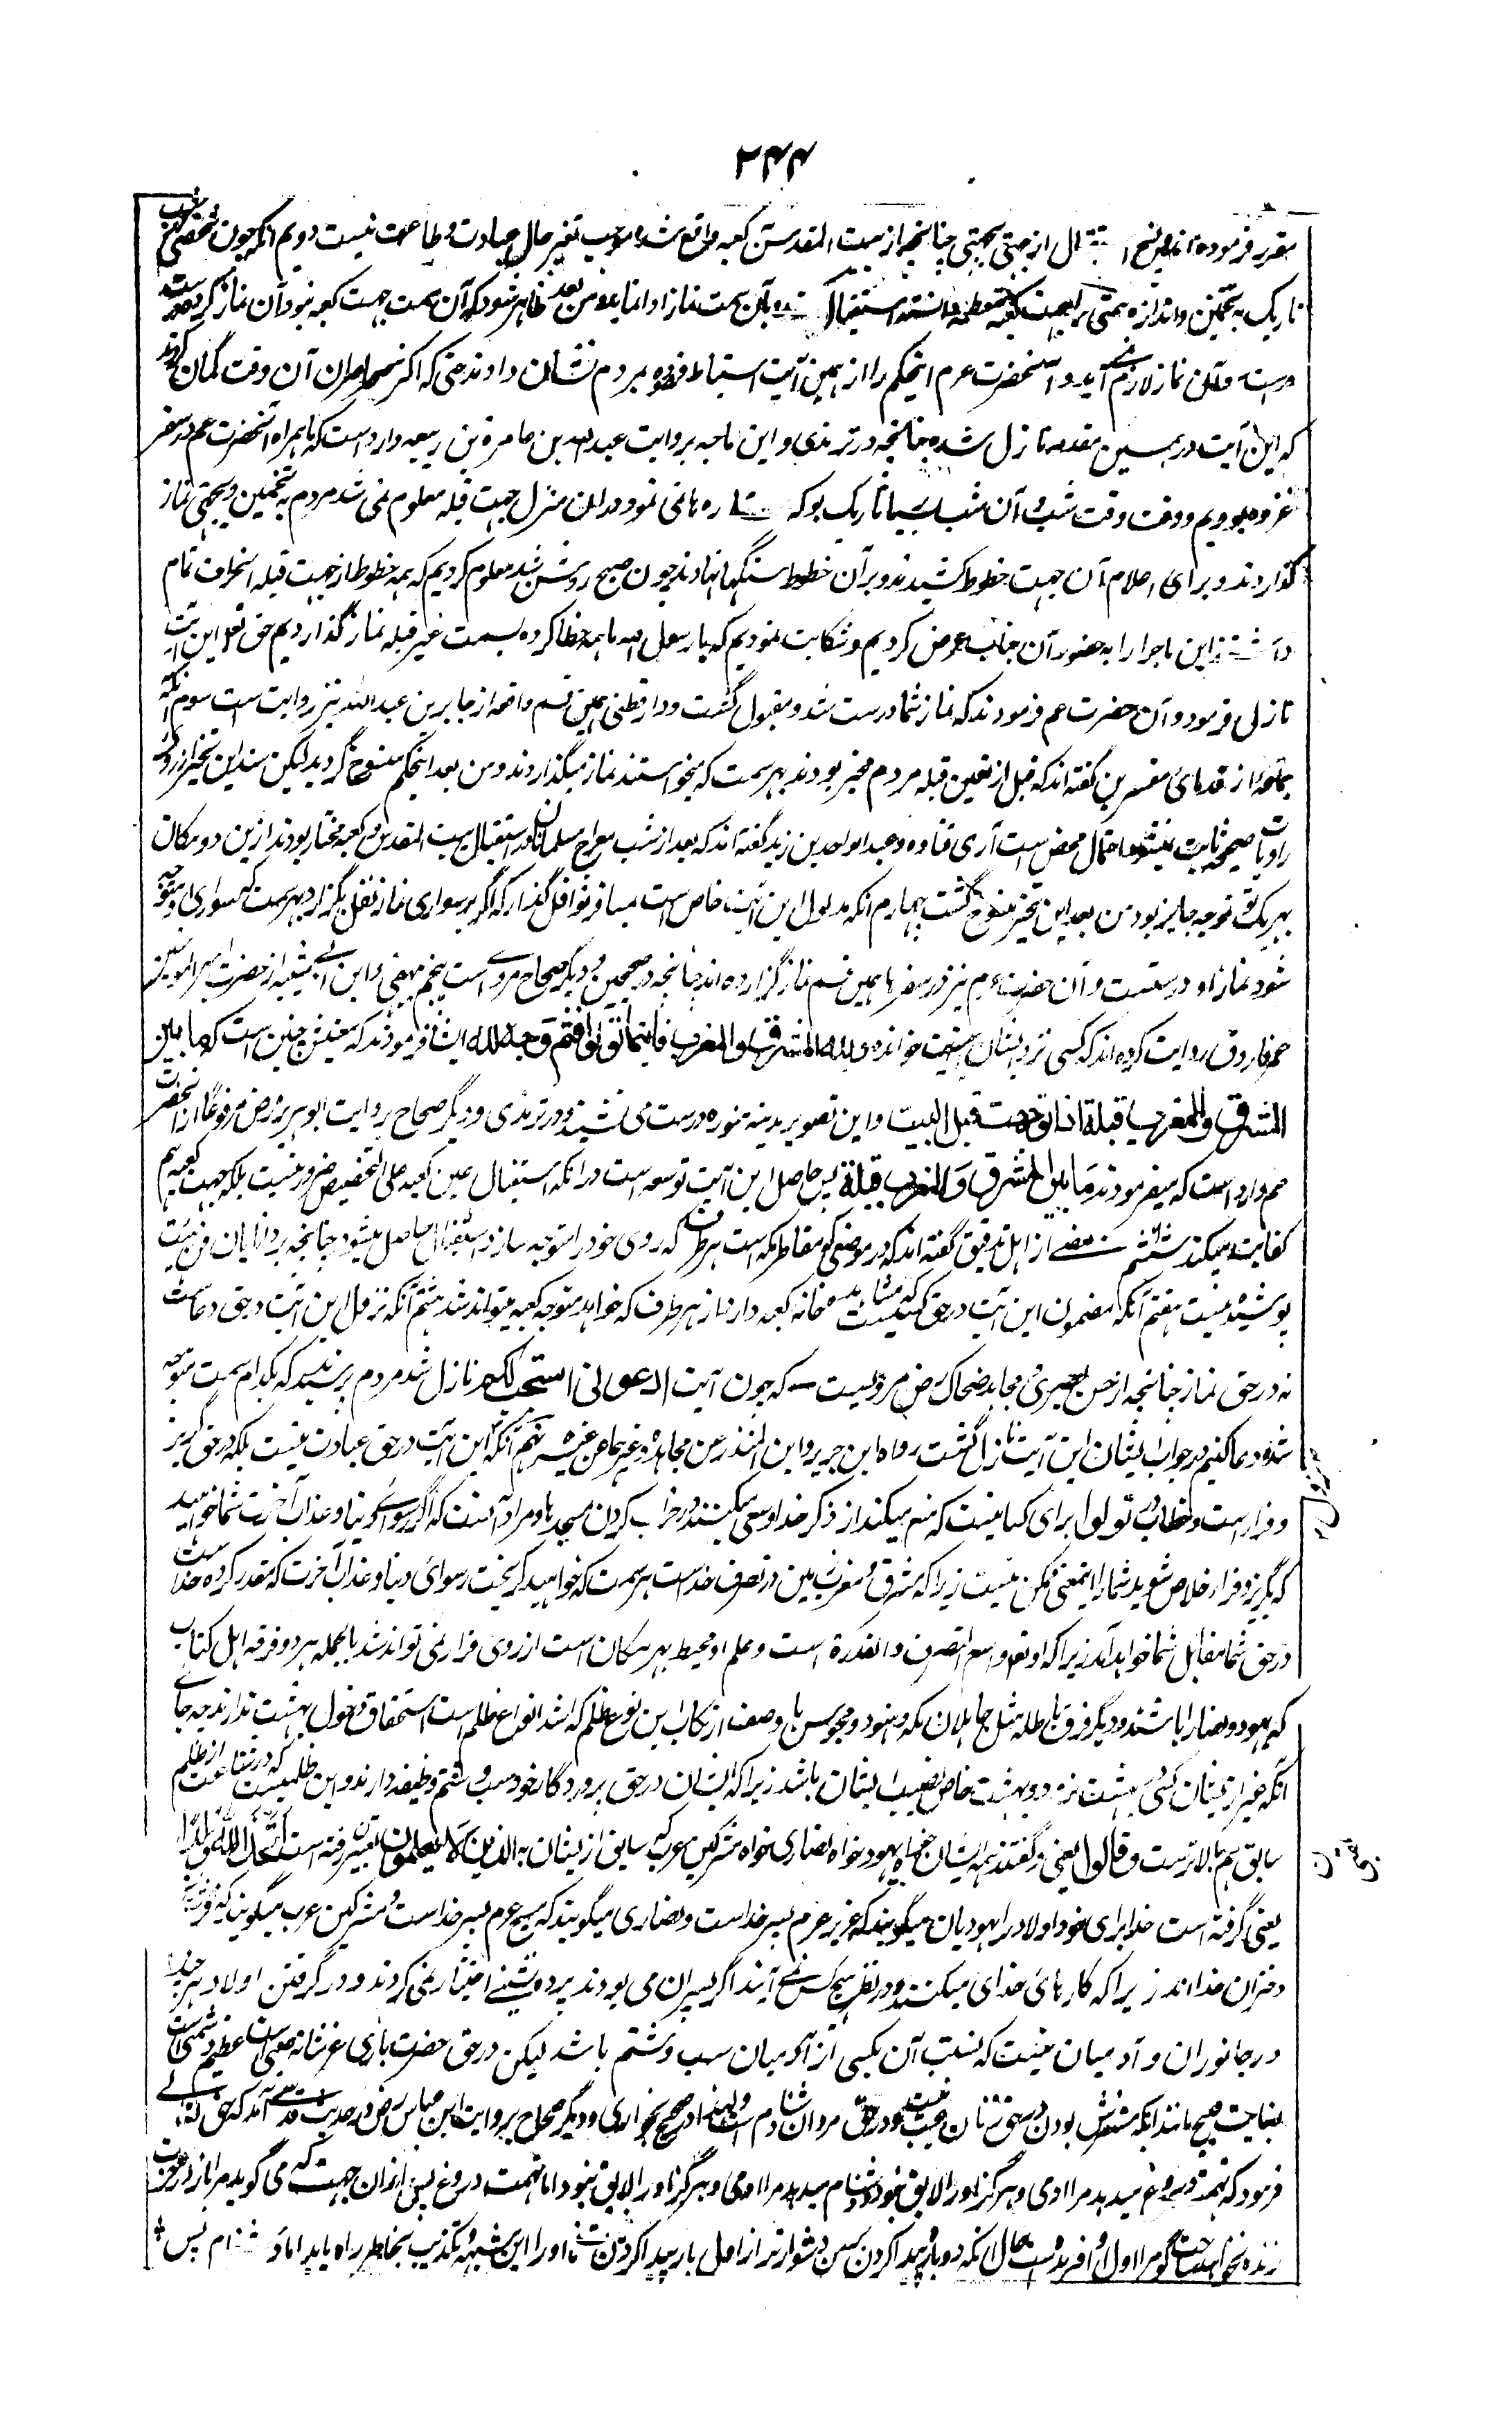 ۲۴۴
مقرر فرموده اند این نسخ انتقال از جهتی بجهتی چنانچه از بیت المقدس بکعبه واقع شد موجب تغیر حال عبادت و طاعت نیست دویم آنکه چون شخصی در شب
تاریک به تخمین و اندازه سمتی را جهت کعبه معظمه دانسته استقبال کند و بآن سمت نماز ادا نماید و من بعد ظاهر شود که آن سمت جهت کعبه نبود آن نماز گردیده
درست و آن نماز لازم آید و آنحضرت عم این حکم را از همین آیت استنباط فرموده بمردم نشان دادند حتی که اکثر حاضران آن وقت گمان کردند
که این آیت در همین مقدمه نازل شده چنانچه در ترمذی و ابن ماجه بروایت عبدالله بن عامر بن ربیعه وارد است که ما همراه آنحضرت عم در سفر
غزوه بودیم و وقت وقت شب و آن شب بسیار تاریک بود که ستاره ها نمی نمود در ان منزل جهت قبله معلوم نمی شد مردم به تخمین و بجهتی نماز
گذاردند و برای اعلام آن جهت خطوط کشیدند و بر آن خطوط سنگها نهادند چون صبح روشن شد معلوم کردیم که همه خطوط از جهت قبله انحراف تمام
داشتند این ماجرا را به حضور آن جناب عرض کردیم و شکایت نمودیم که یا رسول الله ما همه خطا کرده بسمت غیر قبله نماز گذاردیم حق تعالی این آیت
نازل فرمود و آن حضرت عم فرمودند که نماز شما درست شد و مقبول گشت و دارقطنی همین قسم واقعه از جابر بن عبدالله نیز روایت است سوم آنکه
جماعه از قدمای مفسرین گفته اند که قبل از تعین قبله مردم مخیر بودند بهر سمت که میخواستند نماز میگذاردند و من بعد این حکم منسوخ گردید لیکن سند این تخییر از روی
روایات صحیحه ثابت نمیشود احتمال محض است آری قتاده و عبد الواحد بن زید گفته اند که بعد از شب معراج مسلمانان در استقبال بیت المقدس و کعبه مختار بودند ازین دو مکان
بهر یک که توجه جایز بود من بعد این تخییر منسوخ گشت چهارم آنکه مدلول این آیت خاص است بمسافر نوافل گذار که اگر بر سواری نماز نفل بگزارد بهر سمت که سواری او متوجه
شود نماز او درست است و آن حضرت عم نیز در سفرها همین قسم نماز گزارده اند چنانچه در صحیحین و دیگر صحاح مروی است پنجم بیهقی و ابن ابی شیبه از حضرت امیر المومنین
عمر فاروق روایت کرده اند که کسی نزد ایشان این آیت خوانده ولله المشرق والمغرب فاینما تولوا فثم وجه الله ایشان فرمودند که معنیش چنین است که ما بین
المشرق والمغرب قبلة اذا توجهت قبل البیت و این تصویر بمدینه منوره درست می نشیند و در ترمذی و دیگر صحاح بروایت ابو هریره رض مرفوعاً از آنحضرت
عم وارد است که میفرمودند ما بین المشرق والمغرب قبلة پس حاصل این آیت توسعه است در انکه استقبال عین کعبه علی التخصیص ضرور نیست بلکه جهت کعبه هم
کفایت میکند ششم بعضی از اهل تدقیق گفته اند که در موضعی که مقاطر مکه است هر طرف که روی خود را متوجه سازد استقبال حاصل میشود چنانچه بر دانایان فن هیئت
پوشیده نیست هفتم آنکه مضمون این آیت در حق کسیست که مشاهده خانه کعبه دارد از هر طرف که خواهد متوجه کعبه میتواند شد هشتم آنکه نزول این آیت در حق دعاست
نه در حق نماز چنانچه از حسن بصری و مجاهد و ضحاک رض مرویست که چون آیت ادعونی استجب لکم نازل شد مردم پرسیدند که بکدام سمت متوجه
شده دعا کنیم در جواب ایشان این آیت نازل گشت رواه ابن جریر و ابن المنذر عن مجاهد و غیرهما عن غیره نهم آنکه این آیت در حق عبادت نیست بلکه در حق گریز
و فرار است و خطاب تولوا برای کسانیست که منع میکنند از ذکر خدا و سعی میکنند در خراب کردن مسجدها و مراد آنست که اگر رسوائی دنیا و عذاب آخرت شما خواهید
که بگریز و فرار خلاص شوید شما را اینمعنی ممکن نیست زیرا که مشرق و مغرب زمین در تصرف خداست هر سمت که خواهید گریخت رسوائی دنیا و عذاب آخرت که مقدر کرده خداست
در حق شما مقابل شما خواهد آمد زیرا که او تعالی واسع التصرف والقدرة است و علم او محیط بهر مکان است از روی فرار نمی تواند شد بالجمله هر دو فرقه اهل کتاب
که یهود و نصاری باشند و دیگر فرق باطله مثل جاهلان مکه و هنود و مجوس با وصف ارتکاب این نوع ظلم که اشد انواع ظلم است استحقاق دخول بهشت ندارند چه جای
آنکه غیر ازیشان کسی در بهشت نرود و بهشت خاص نصیب ایشان باشد زیرا که ایشان در حق پروردگار خود سب و شتم وظیفه دارند و این ظلمیست که در شناعت از ظلم
سابق هم بالاترست وقالوا یعنی و گفتند همه ایشان خواه یهود و خواه نصاری خواه مشرکین عرب که سابق ازیشان به الذین لا یعلمون تعبیر رفته است اتخذ الله ولدا
یعنی گرفته است خدا برای خود اولاد را یهودیان میگویند که عزیر عم پسر خداست و نصاری میگویند که مسیح عم پسر خداست و مشرکین عرب میگویند که فرشته
دختران خدا اند زیرا که کارهای خدای میکنند و در نظر هیچکس نمی آیند اگر پسران می بودند پرده نشینی اختیار نمی کردند و در گرفتن اولاد هر چند
در جانوران و آدمیان عیب نیست که نسبت آن بکسی از آدمیان سب و شتم باشد لیکن در حق حضرت باری عز شانه عیبی است عظیم و شتمی است
بغایت قبیح مانند آنکه مفترش بودن در حق زنان عیب نیست و در حق مردان دشنام است ولهذا در صحیح بخاری و دیگر صحاح بروایت ابن عباس رض در حدیث قدسی آمد که حق تعالی
فرمود که تهمت دروغ میدهد مرا آدمی و هرگز او را لایق نبود و دشنام میدهد مرا آدمی و هرگز او را لایق نبود اما تهمت دروغ پس ازان جهت که می گوید مرا باز در آخرت
زنده نخواهد ساخت گو مرا اول آفریده است حال انکه دوباره پیدا کردن من دشوارتر از اول بار پیدا کردن نیست تا او را این شبهه و تکذیب بخاطر راه یابد اما دشنام پس